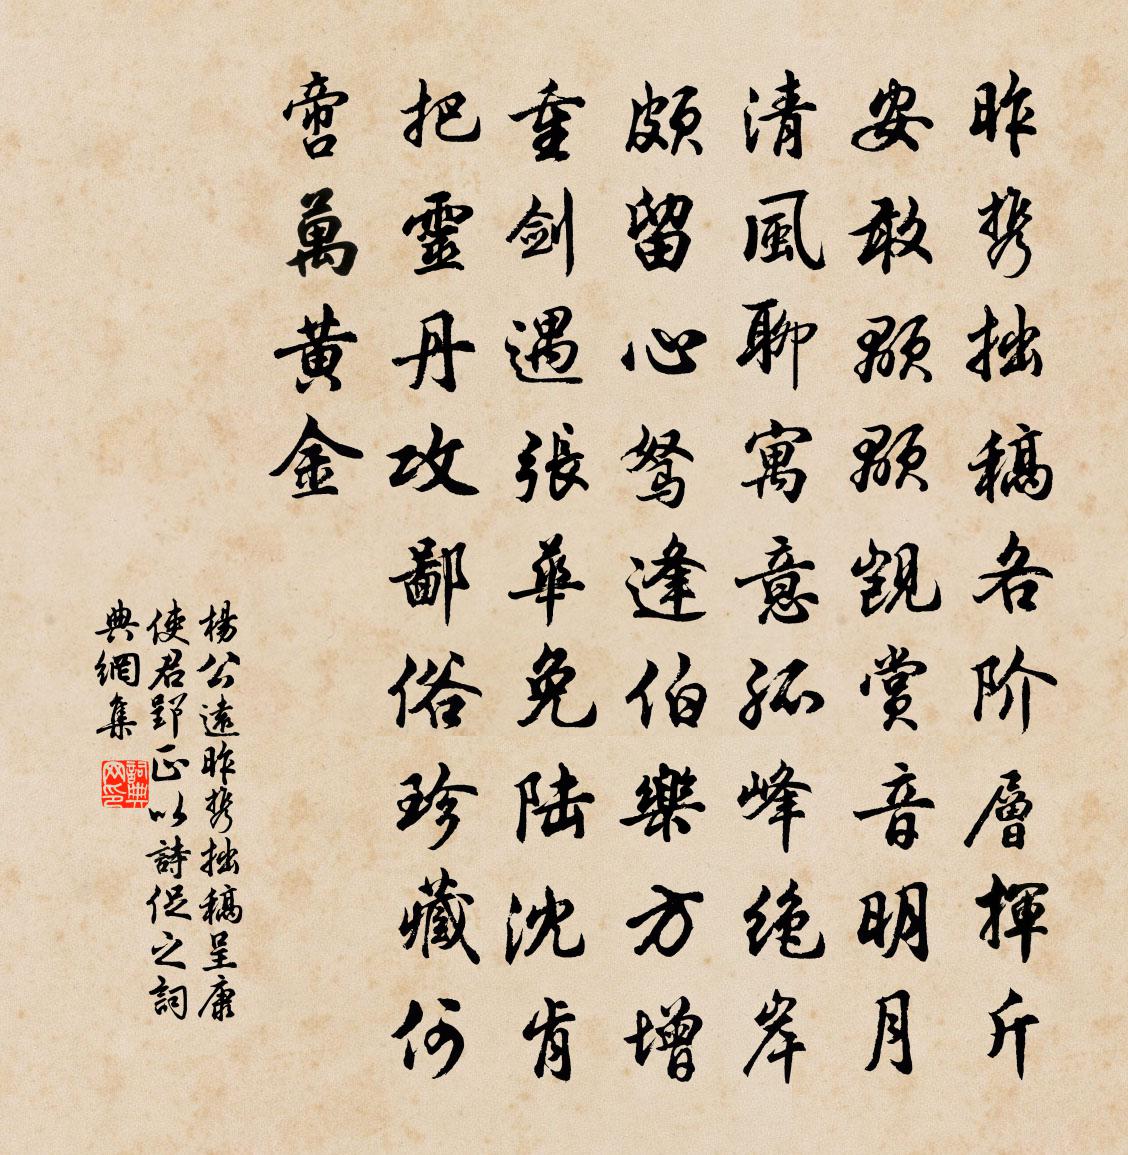 昨携拙稿各阶層揮斤
安敢顒顒覬賞音明月
清風聊寓意孤峰絶岸
頗留心駑逢伯樂方增
重剑遇張華免陆沈肯
把靈丹攻鄙俗珍藏何
啻萬黄金
楊公遠昨携拙稿呈康
使君郢正以詩促之詞
典網集
詞典网印